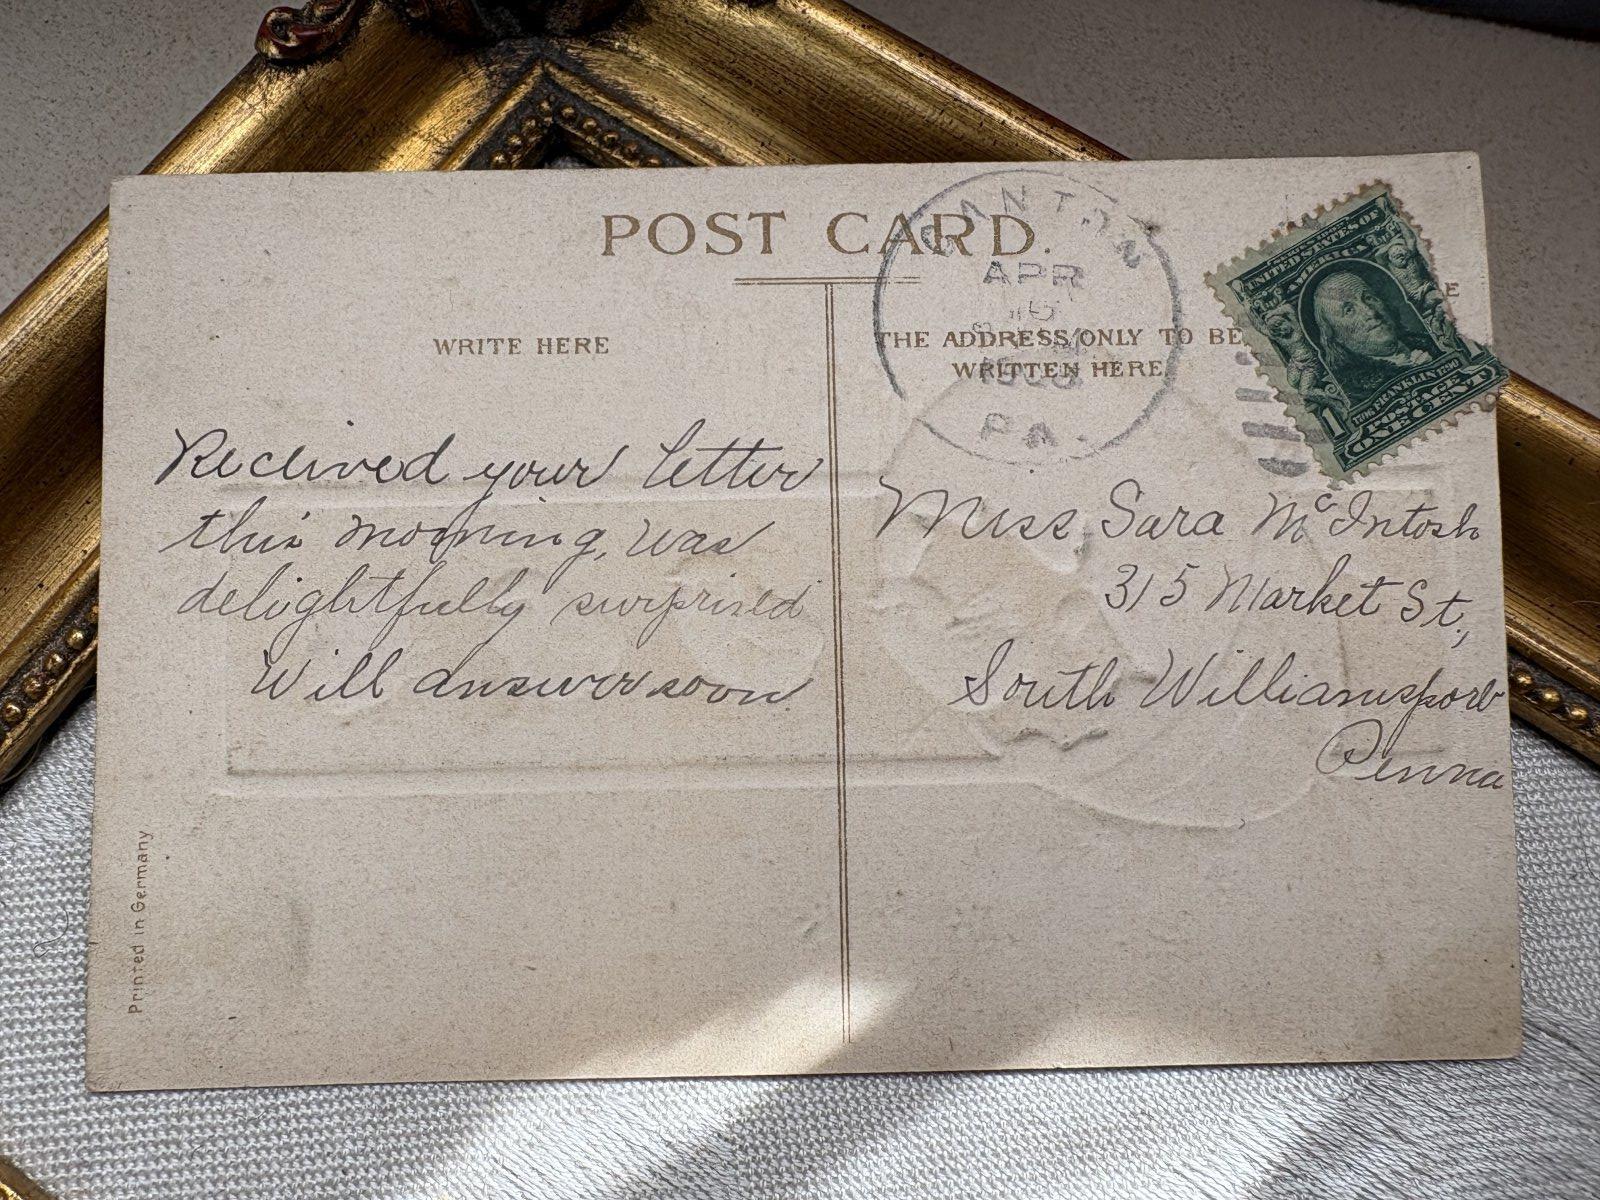 POST CARD.
CANTON
APR
1908
PA.
WRITE HERE
THE ADDRESS ONLY TO BE
WRITTEN HERE
UNITED STATES OF
AMERICA
1706 FRANKLIN 1790
POSTAGE
1 ONE CENT 1
Received your letter
this morning, was
delightfully surprised
Will answer soon.
Miss Sara McIntosh
315 Market St,
South Williamsport
Penna
Printed in Germany